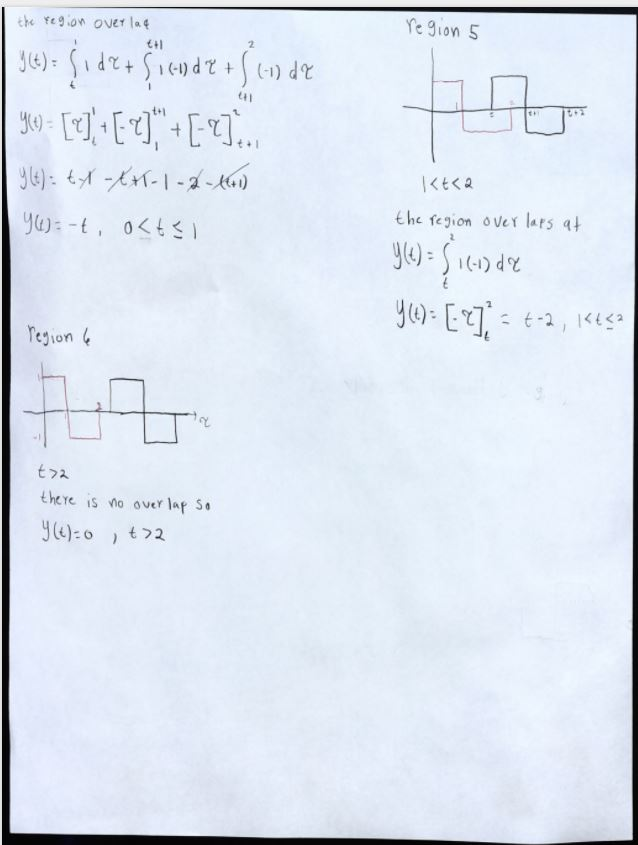 the region overlap
y(t) = ∫_t^1 1 dτ + ∫_1^{t+1} 1(-1) dτ + ∫_{t+1}^2 (-1) dτ
y(t) = [τ]_t^1 + [-τ]_1^{t+1} + [-τ]_{t+1}^2
y(t) = t-1 -t+1-1-2-(t+1)
y(t) = -t, 0<t≤1
region 5
1 2 t t+1 t+2
1<t<2
the region overlaps at
y(t) = ∫_t^2 1(-1) dτ
y(t) = [-τ]_t^2 = t-2, 1<t≤2
region 6
1 2 τ
-1
t>2
there is no overlap so
y(t)=0, t>2